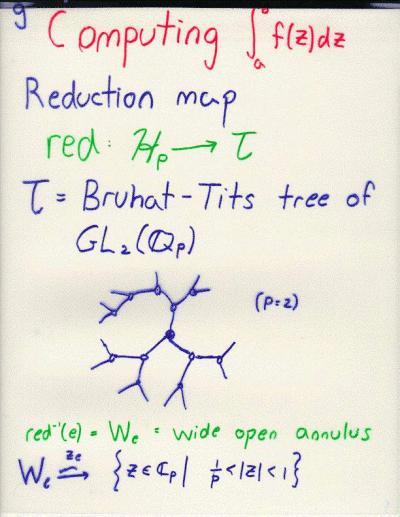 9
Computing ∫ₐᵇ f(z)dz
Reduction map
red: ℋp → τ
τ = Bruhat-Tits tree of
GL₂(ℚp)
(p=2)
red⁻¹(e) = We = wide open annulus
We –ze→ {z∈ℂp | 1/p<|z|<1}